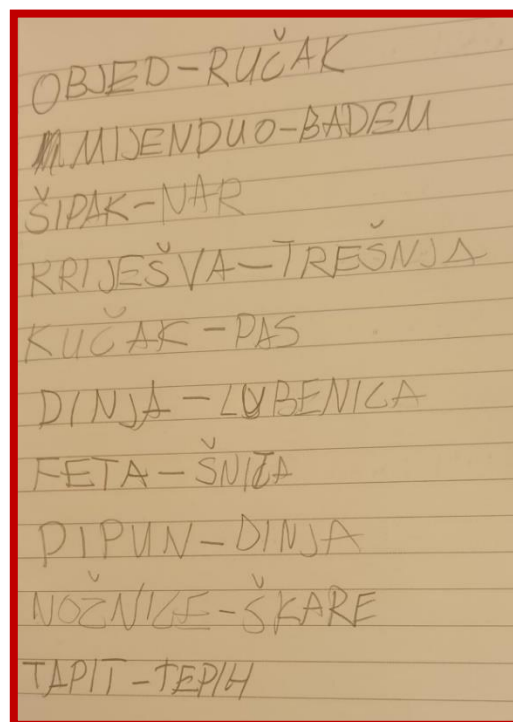 OBJED-RUČAK
MIJENDUO-BADEM
ŠIPAK-NAR
KRIJEŠVA-TREŠNJA
KUČAK-PAS
DINJA-LUBENICA
FETA-ŠNITA
PIPUN-DINJA
NOŽNICE-ŠKARE
TAPIT-TEPIH